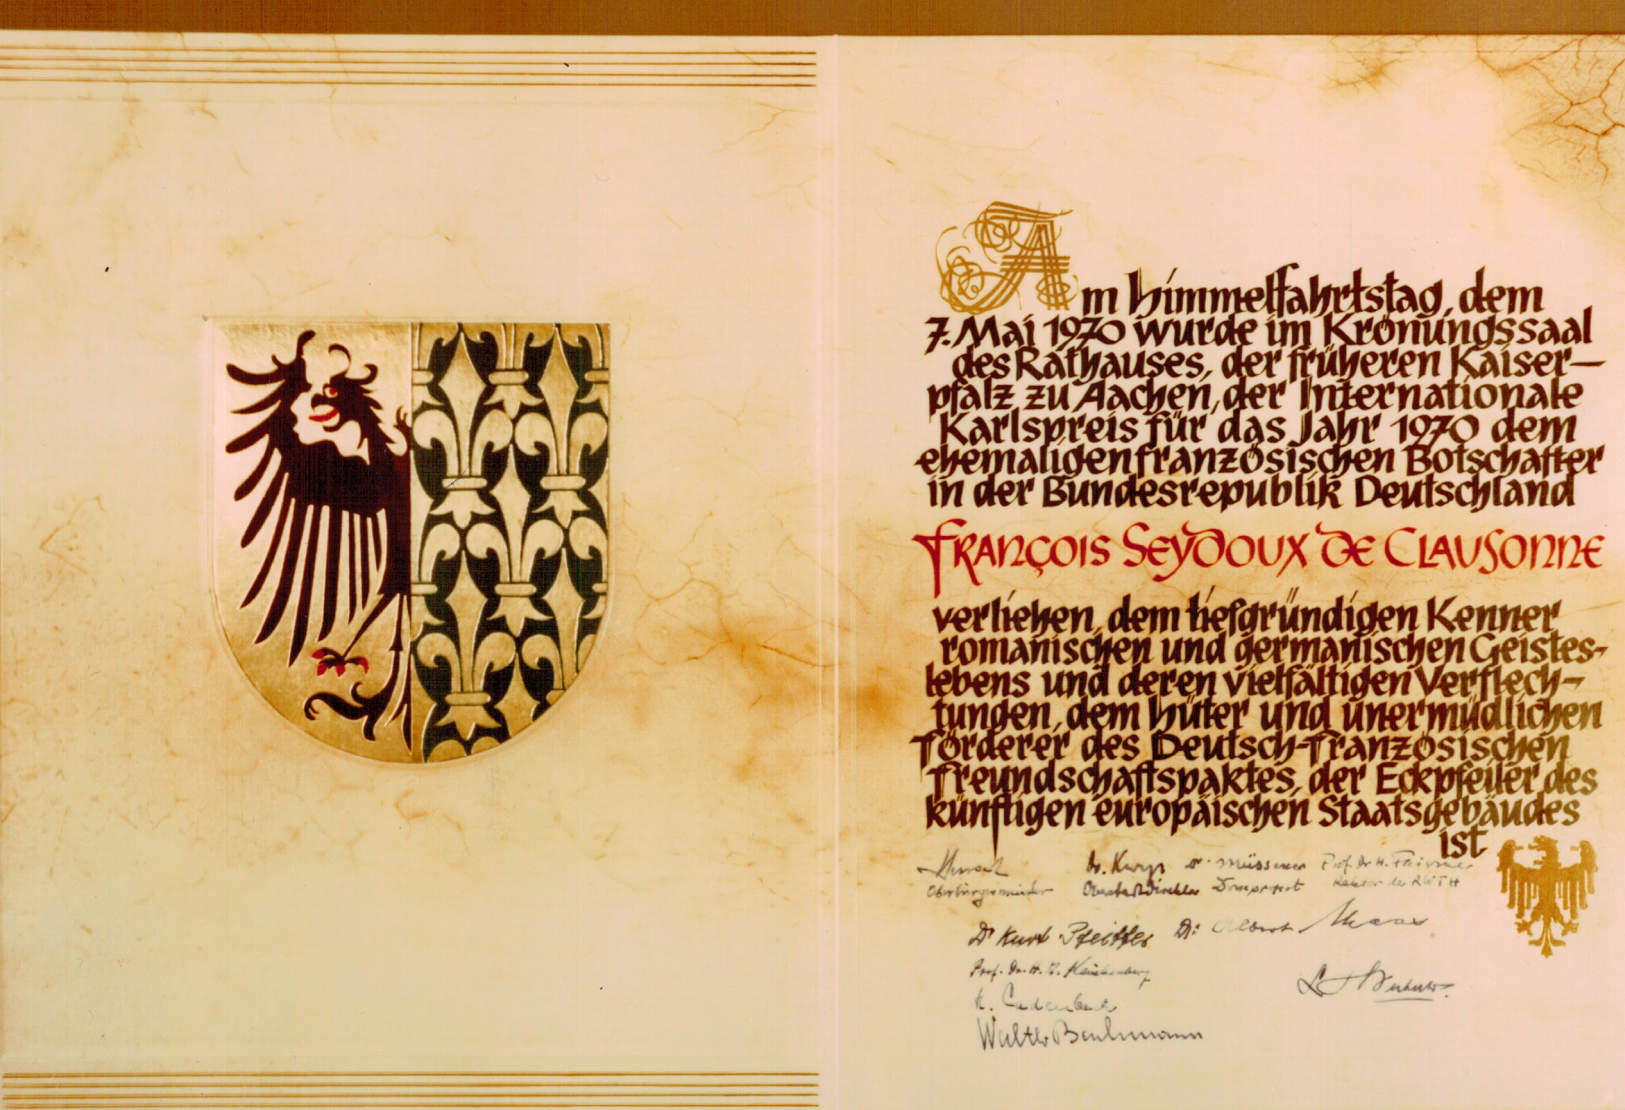 Am Himmelfahrtstag, dem
7. Mai 1970 wurde im Krönungssaal
des Rathauses, der früheren Kaiser-
pfalz zu Aachen, der Internationale
Karlspreis für das Jahr 1970 dem
ehemaligen französischen Botschafter
in der Bundesrepublik Deutschland
FRANÇOIS SEYDOUX DE CLAUSONNE
verliehen, dem tiefgründigen Kenner
romanischen und germanischen Geistes-
lebens und deren vielfältigen Verflech-
tungen, dem Hüter und unermüdlichen
Förderer des Deutsch-Französischen
Freundschaftspaktes, der Eckpfeiler des
künftigen europäischen Staatsgebäudes
ist
Oberbürgermeister Oberstadtdirektor Dompropst Rektor der RWTH
Dr Kurt Pfeiffer Dr. Albert Maas
Prof. Dr. H.
Walter